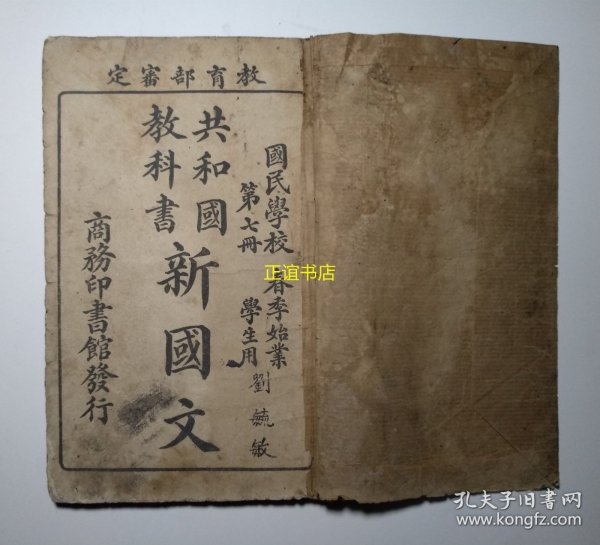 教育部審定
國民學校 春季始業
第七冊 學生用
劉毓敏
共和國
教科書
新國文
商務印書館發行
正谊书店
孔夫子旧书网
www.kongfz.com